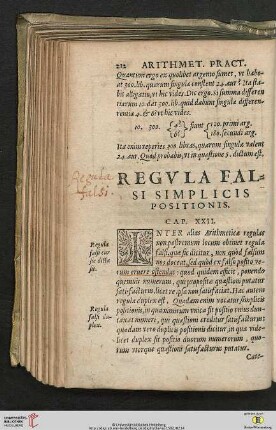 212 ARITHMET. PRACT.
Quantum ergo ex quolibet argento sumet, vt habe-
at 300. lib. quarum singulæ constent 24. aur? Ita sta-
bis alligatio, vt hic vides. Dic ergo. Si summa differen
tiarum 10. dat 300. lib. quid dabunt singulæ differen-
tiæ 4. & 6? vt hic vides.
10. 300. {4? 6?} fiunt {120. primi arg. 180. secundi arg.
Ita enim reperies 300 libras, quarum singulæ valent
24. aur. Quod probabis, vt in quæstione 5. dictum est.
Regula
falsi.
REGVLA FAL-
SI SIMPLICIS
POSITIONIS.
CAP. XXII.
Regula
falsi cur
sic dicta
sit.
INTER alias Arithmeticæ regulas
non postremum locum obtinet regula
falsi, quæ sic dicitur, non quod falsum
nos doceat, sed quod ex falso posito ve-
rum eruere ostendat: quod quidem efficit, ponendo
quemuis numerum, qui propositæ quæstioni putatur
satisfacturus, licet re ipsa non satisfaciat. Hæc autem
Regula
falsi du-
plex.
regula duplex est. Quædam enim vocatur simplicis
positionis, in qua nimirum vnica fit positio vnius dun-
taxat numeri, qui quæstioni creditur satisfacturus:
quædam vero duplicis positionis dicitur, in qua vide-
licet duplex fit positio duorum numerorum, quo-
rum vterque quæstioni satisfacturus putatur.
Cæte-